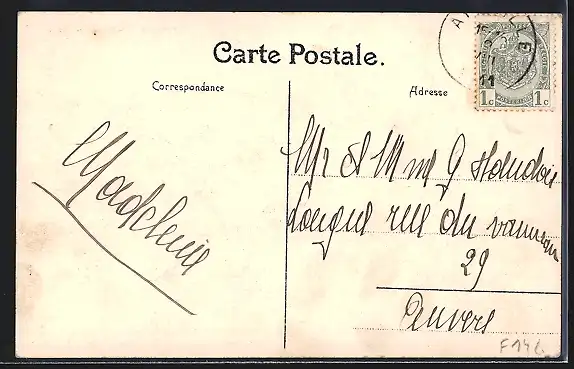 Carte Postale.
Correspondance
Adresse
1c 1c
11
Madeleine
Mr & Mme G
Longue rue du vanneau
29
Anvers
F146